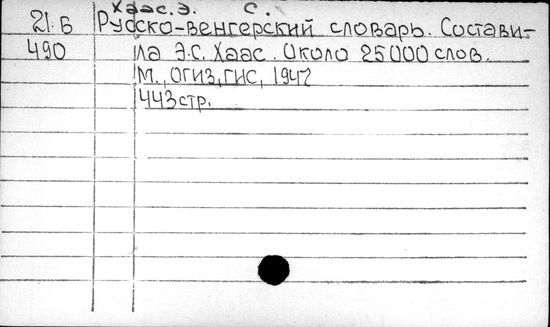 Хаас. Э. С.
21. Б Русско-венгерский словарь. Состави-
490 ла Э.С. Хаас. Около 25000 слов.
М., ОГИЗ, ГИС, 1947
443 стр.